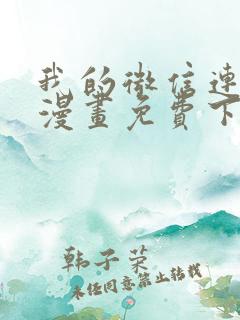 我的微信连
漫畫免費下
韩子荣
未经同意禁止转载